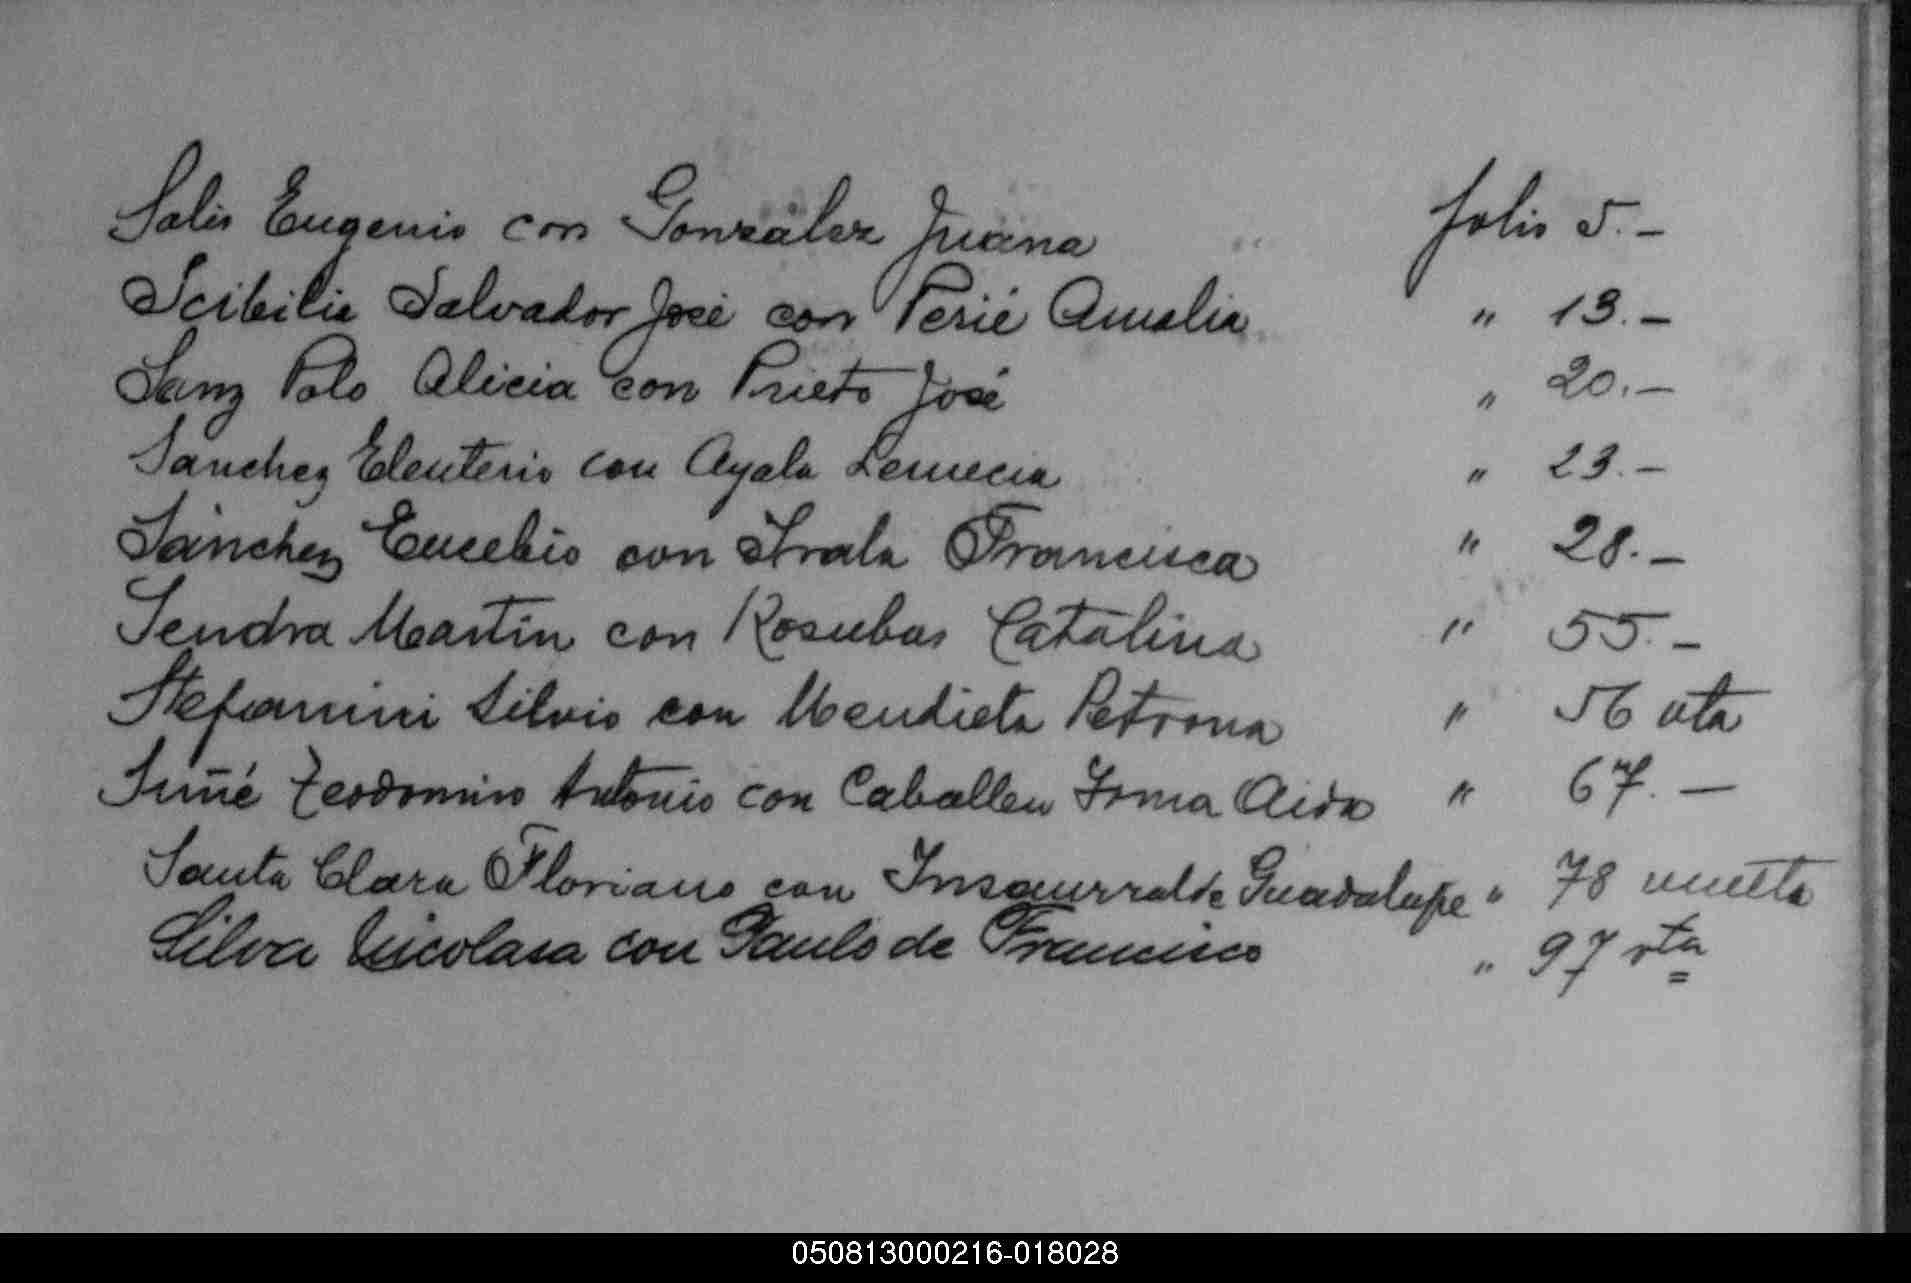 Solis Eugenio con González Juana folio 5.-
Scibilia Salvador José con Perié Amalia " 13.-
Sanz Polo Alicia con Prieto José " 20.-
Sanchez Eleuterio con Ayala " 23.-
Sánchez Eucebio con Irala Francisca " 28.-
Sendra Martín con Rosubas Catalina " 55.-
Stefanini Silvio con Mendieta Petrona " 56 vta
Suñé Teodomiro Antonio con Caballero Irma Aida " 67.-
Santa Clara Floriano con Insaurralde Guadalupe " 78 vuelta
Silva Nicolasa con Paulo de Francisco " 97 vta
050813000216-018028